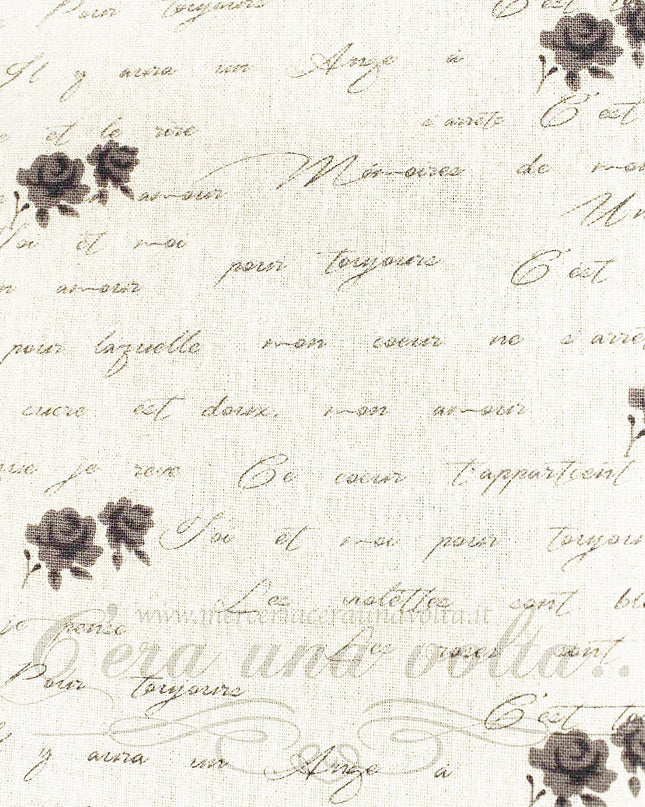 Pour toujours C'est
Il y aura un Ange à
et le rire s'arrête C'est
amour Mémoires de mon
Toi et moi Un
pour toujours C'est
amour
pour laquelle mon coeur ne s'arrête
sucre est doux, mon amour
que je reve Ce coeur t'appartient
Toi et moi pour toujours
Les violettes sont
www.merceriaceraunavolta.it
je pense
C'era una volta...
Les roses sont
Pour toujours
C'est
y aura un Ange à